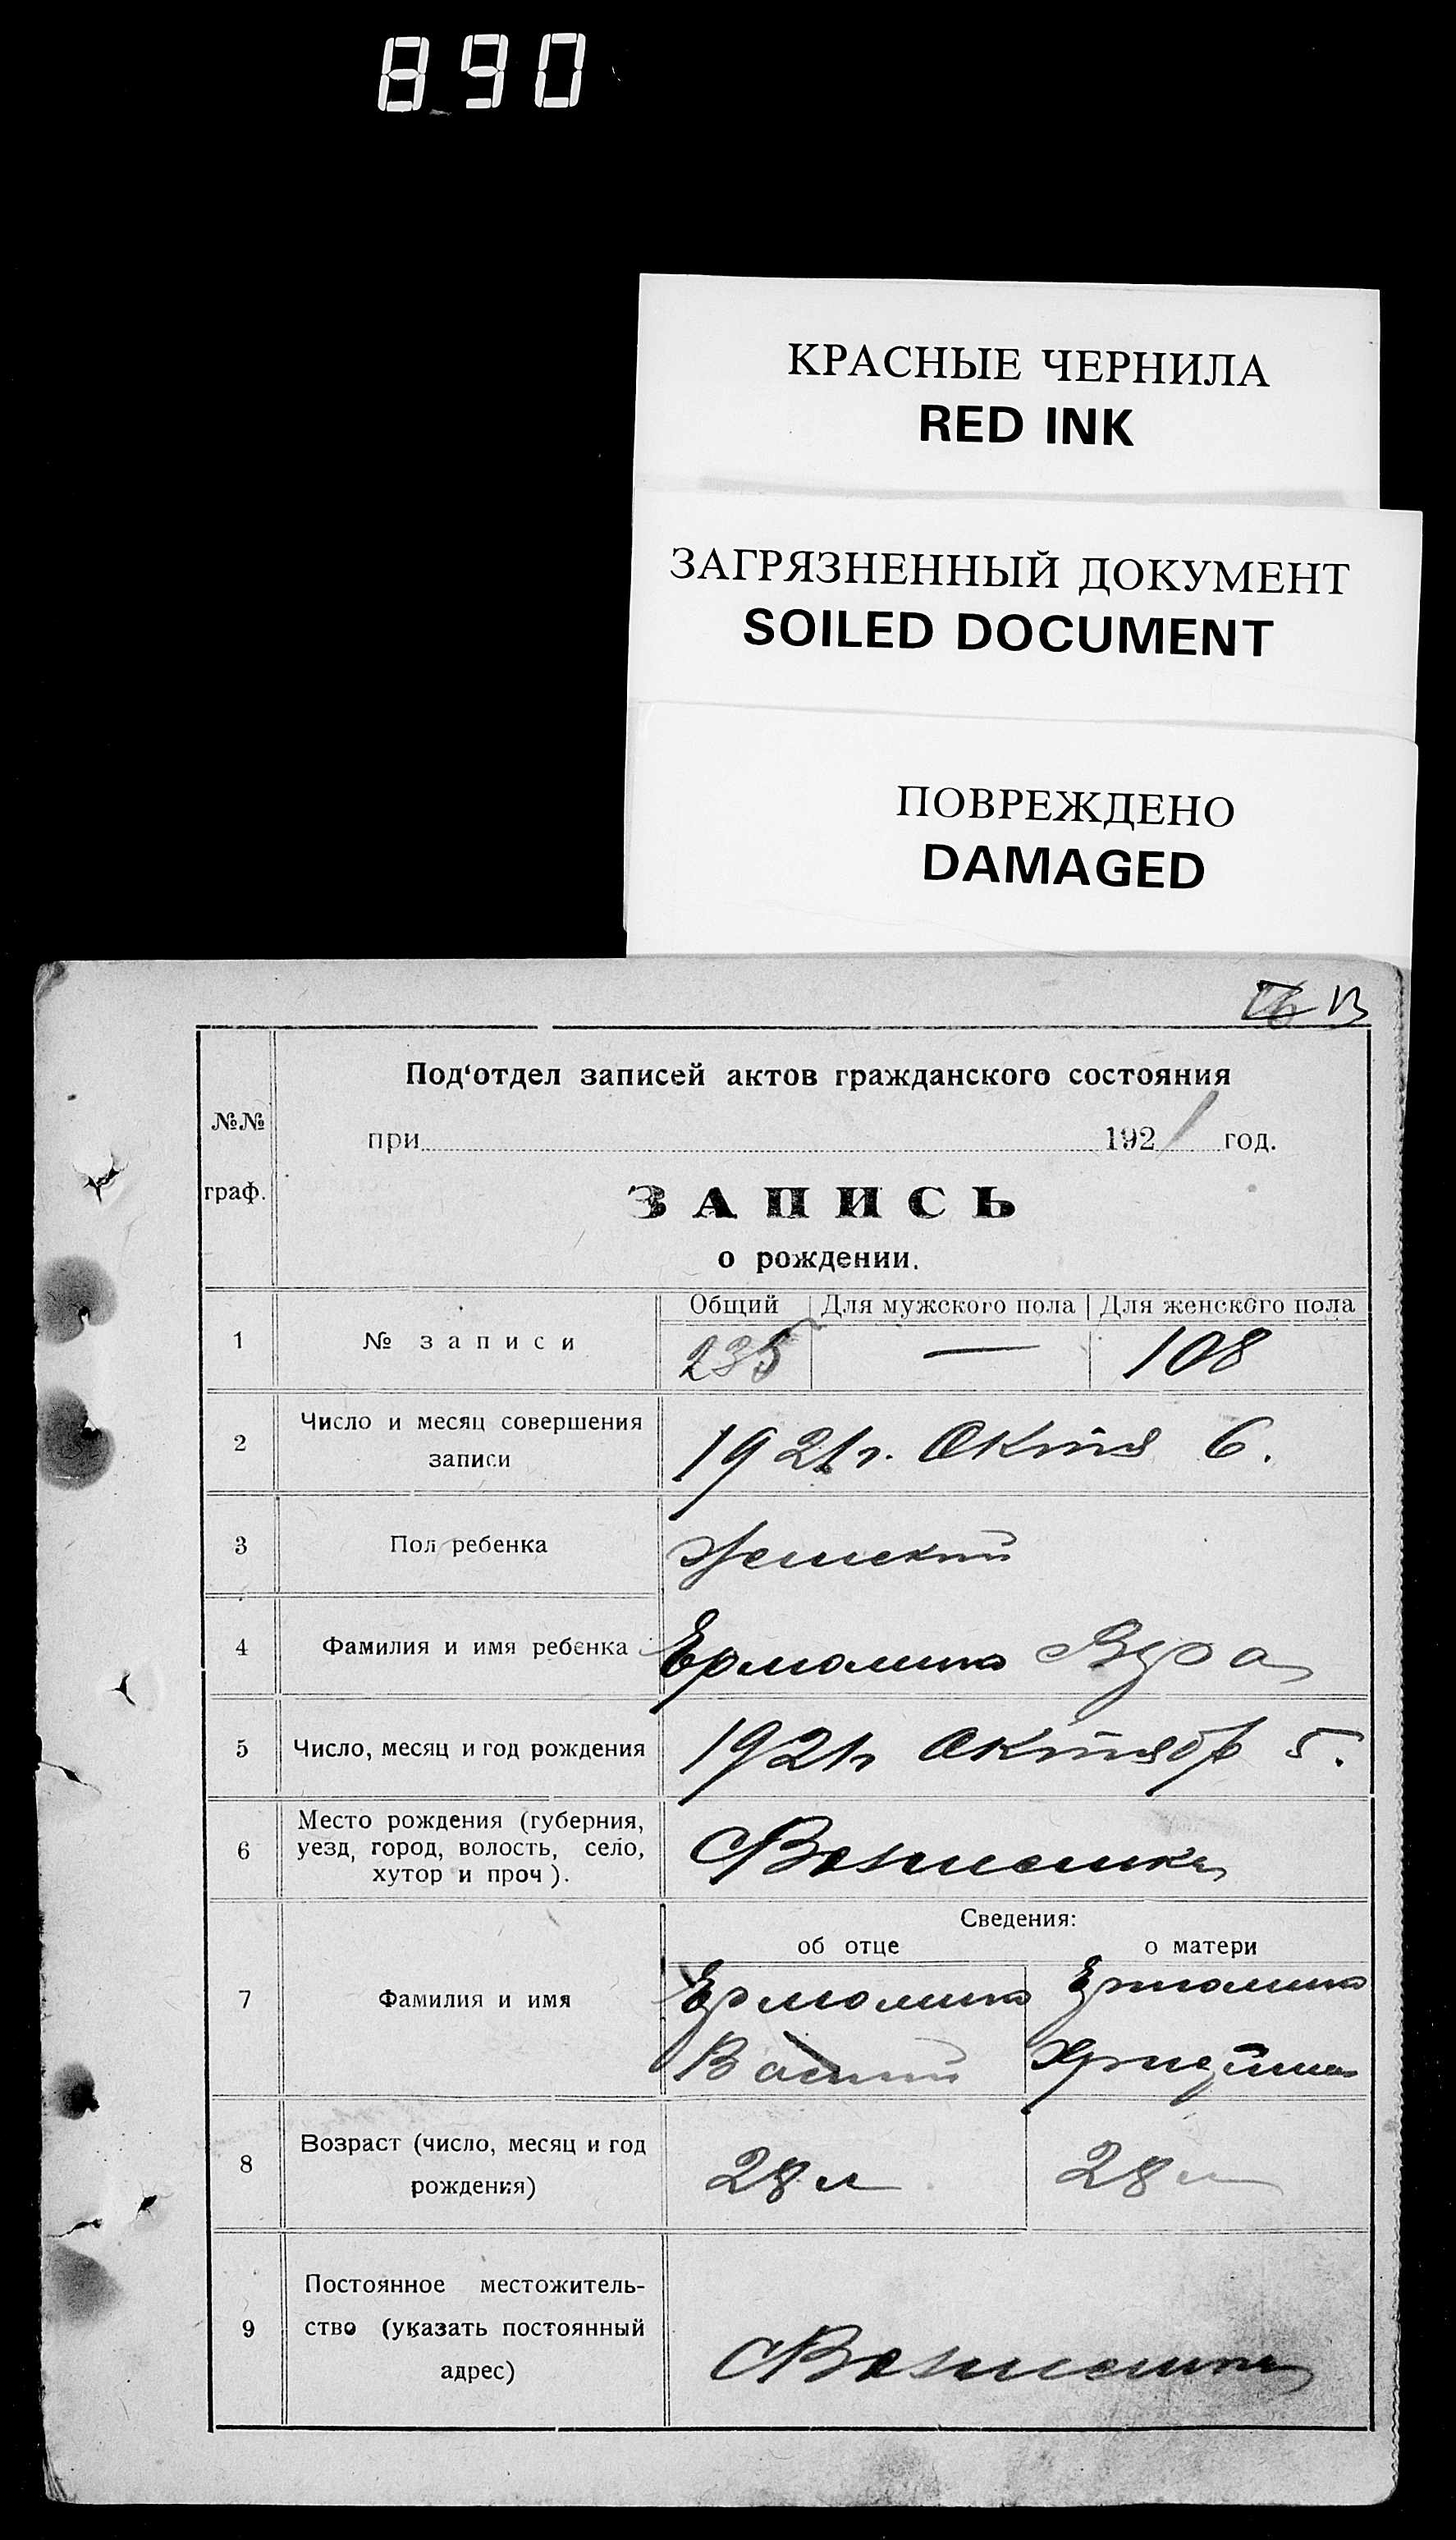 890
КРАСНЫЕ ЧЕРНИЛА
RED INK
ЗАГРЯЗНЕННЫЙ ДОКУМЕНТ
SOILED DOCUMENT
ПОВРЕЖДЕНО
DAMAGED
13
Под‘отдел записей актов гражданского состояния
№№
при 1921 год.
граф.
ЗАПИСЬ
о рождении.
Общий Для мужского пола Для женского пола
1 № записи 235 — 108
2 Число и месяц совершения
записи
1921г. Октя 6.
3 Пол ребенка Женский
4 Фамилия и имя ребенка Ермоленко Вера
5 Число, месяц и год рождения 1921г Октябр 5.
Место рождения (губерния,
6 уезд, город, волость, село,
хутор и проч).
Сведения:
об отце о матери
7 Фамилия и имя Ермоленко Ермоленко
8 Возраст (число, месяц и год
рождения)
28 л 28 л
Постоянное местожитель-
9 ство (указать постоянный
адрес)